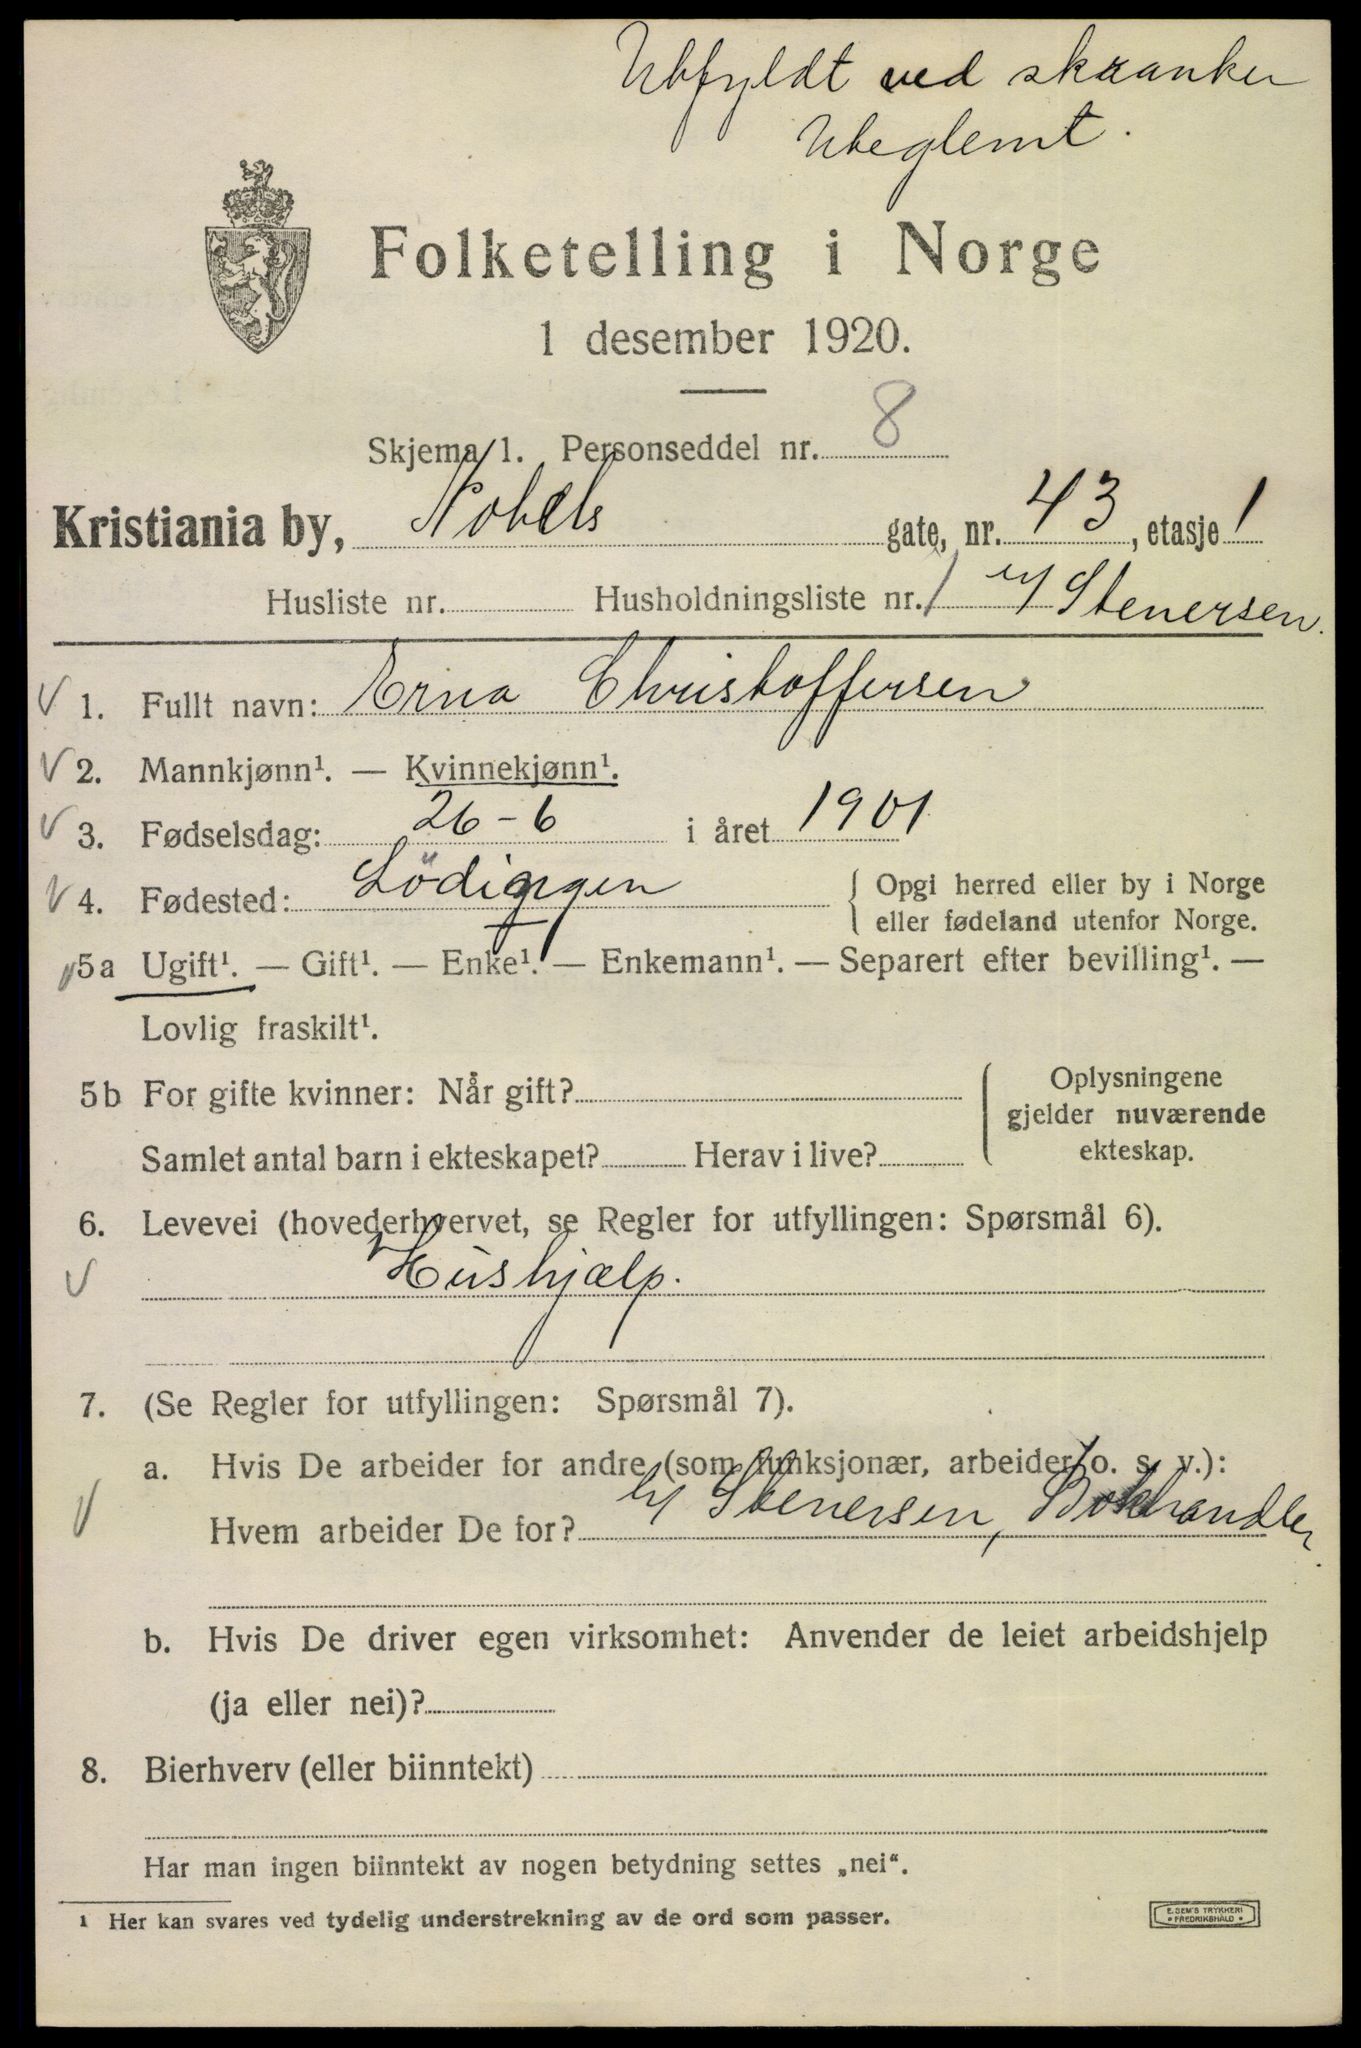 Utfyldt ved skranken
Uteglemt.
Folketelling i Norge
1 desember 1920.
Skjema 1. Personseddel nr. 8
Kristiania by, Nobels gate, nr. 43, etasje 1
Husliste nr. Husholdningsliste nr. 1 h/ Stenersen.
√ 1. Fullt navn: Erna Christoffersen
√ 2. Mannkjønn¹. — Kvinnekjønn¹.
√ 3. Fødselsdag: 26-6 i året 1901
√ 4. Fødested: Lödingen { Opgi herred eller by i Norge
eller fødeland utenfor Norge.
√ 5a Ugift¹. — Gift¹. — Enke¹. — Enkemann¹. — Separert efter bevilling¹. —
Lovlig fraskilt¹.
5b For gifte kvinner: Når gift? { Oplysningene
gjelder nuværende
ekteskap.
Samlet antal barn i ekteskapet? Herav i live?
6. Levevei (hovederhvervet, se Regler for utfyllingen: Spørsmål 6).
√ Hushjælp.
7. (Se Regler for utfyllingen: Spørsmål 7).
a. Hvis De arbeider for andre (som funksjonær, arbeider o. s. v.):
√ Hvem arbeider De for? h/ Stenersen, Bokhandler.
b. Hvis De driver egen virksomhet: Anvender de leiet arbeidshjelp
(ja eller nei)?
8. Bierhverv (eller biinntekt)
Har man ingen biinntekt av nogen betydning settes „nei“.
¹ Her kan svares ved tydelig understrekning av de ord som passer.
E. SEM'S TRYKKERI
• FREDRIKSHALD •